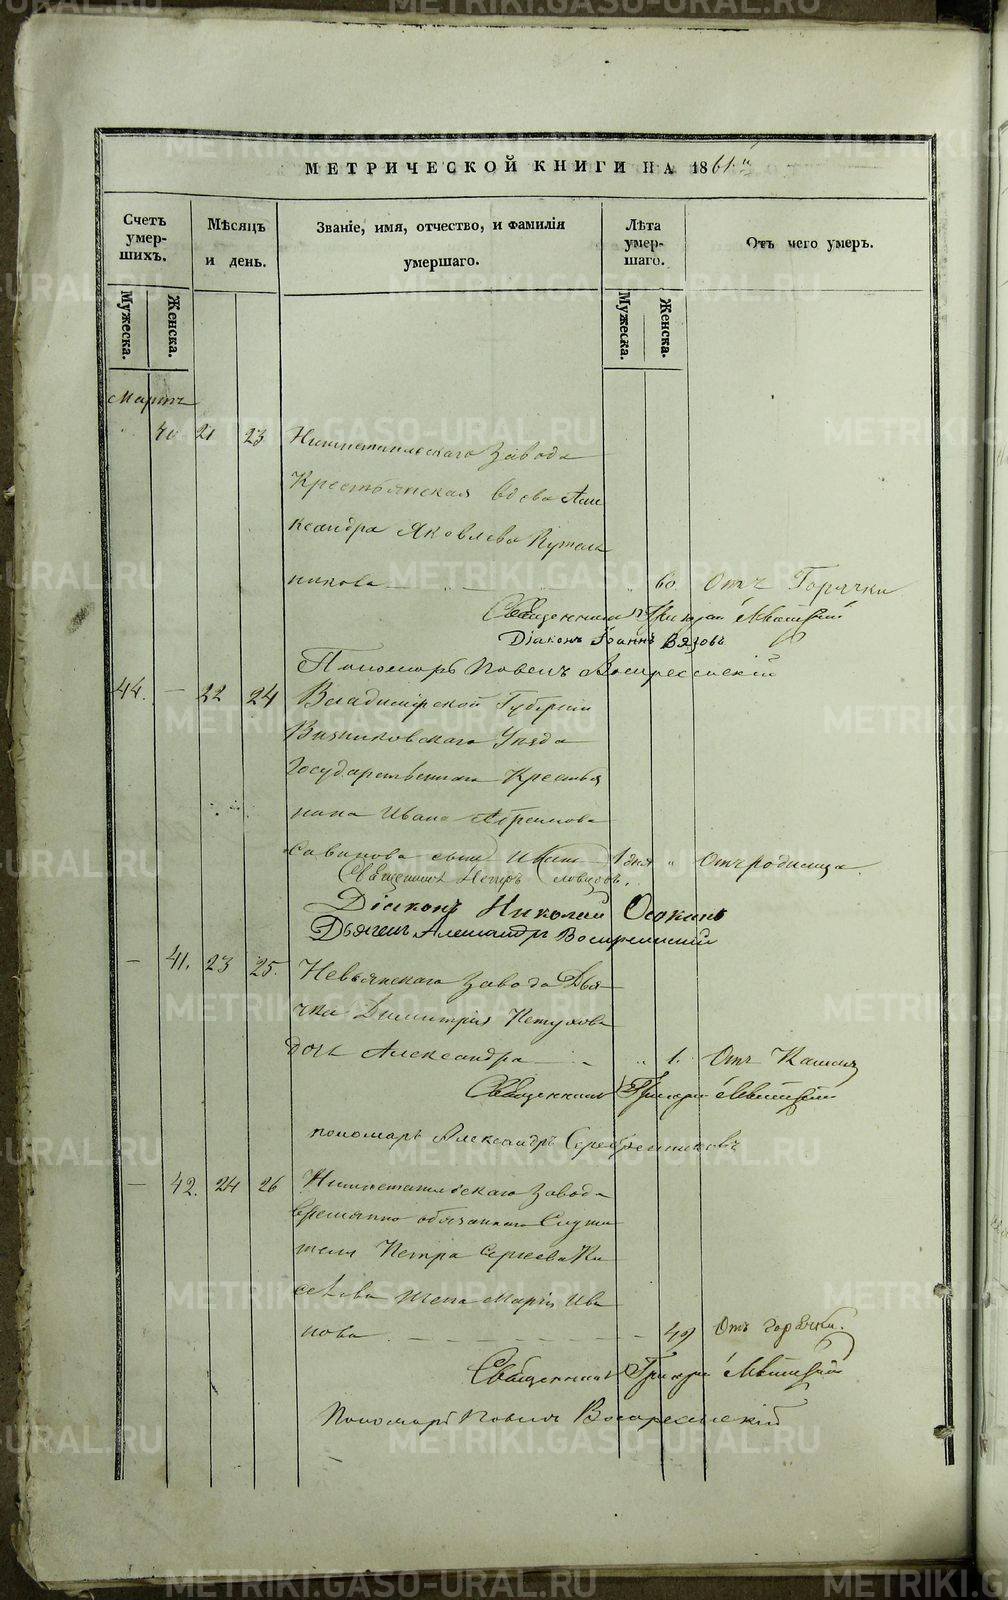 МЕТРИЧЕСКОЙ КНИГИ НА 1861й
Счетъ умер-шихъ.
Мѣсяцъ и день.
Званіе, имя, отчество, и фамилія умершаго.
Лѣта умер-шаго.
Отъ чего умеръ.
Мужеска. Женска.
Мужеска. Женска.
Мартъ
40 21 23 Нижнетагильскаго Завода
Крестьянская вдова Алек
ксандра Яковлева
никова 60 Отъ Горячки
Священникъ Левитскій
Діаконъ Іоаннъ Вязовъ
Пономарь Павелъ Воскресенскій
44. — 22 24 Владимірской Губерніи
Вязниковскаго Уѣзда
Государственнаго Крестья
нина Ивана Абрамова
Савинова сынъ 1 дня " Отъ родимца.
Священникъ Петръ Словцовъ.
Діаконъ Николай Осокинъ
Дьячекъ Александръ Воскресенскій
— 41. 23 25. Невьянскаго Завода Дья
чка Димитрія Петухова
дочь Александра 1. Отъ Кашля
Священникъ Григорій Левитскій
пономарь Александръ Серебренниковъ
— 42. 24 26 Нижнетагильскаго Завода
временно обязаннаго Служи
теля Петра Сергеева Ки
селева жена Марія Ива
нова 49 Отъ горячки.
Священникъ Григорій Левитскій
Пономарь Павелъ Воскресенскій
METRIKI.GASO-URAL.RU